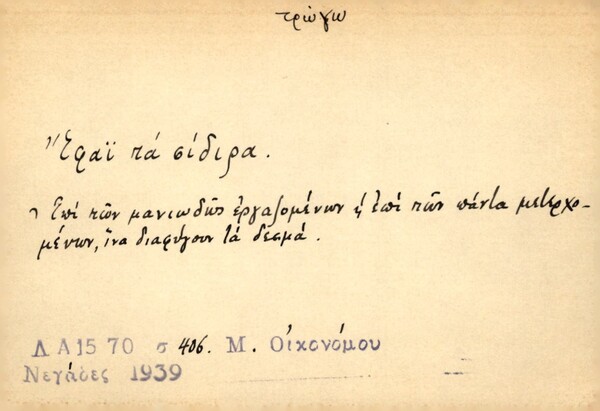 τρώγω
Ἔφαϊ τά σίδιρα.
Ἐπί τῶν μανιωδῶς ἐργαζομένων ἤ ἐπί τῶν πάντα μετερχο-
μένων, ἵνα διαφύγουν τά δεσμά.
Λ Α 15 70 σ 406. Μ. Οἰκονόμου
Νεγάδες 1939